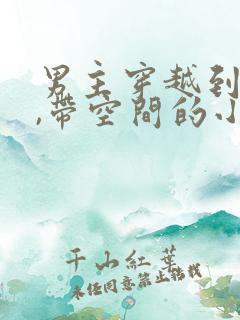 男主穿越到
,帶空間的小
千山紅葉
未经同意禁止转载